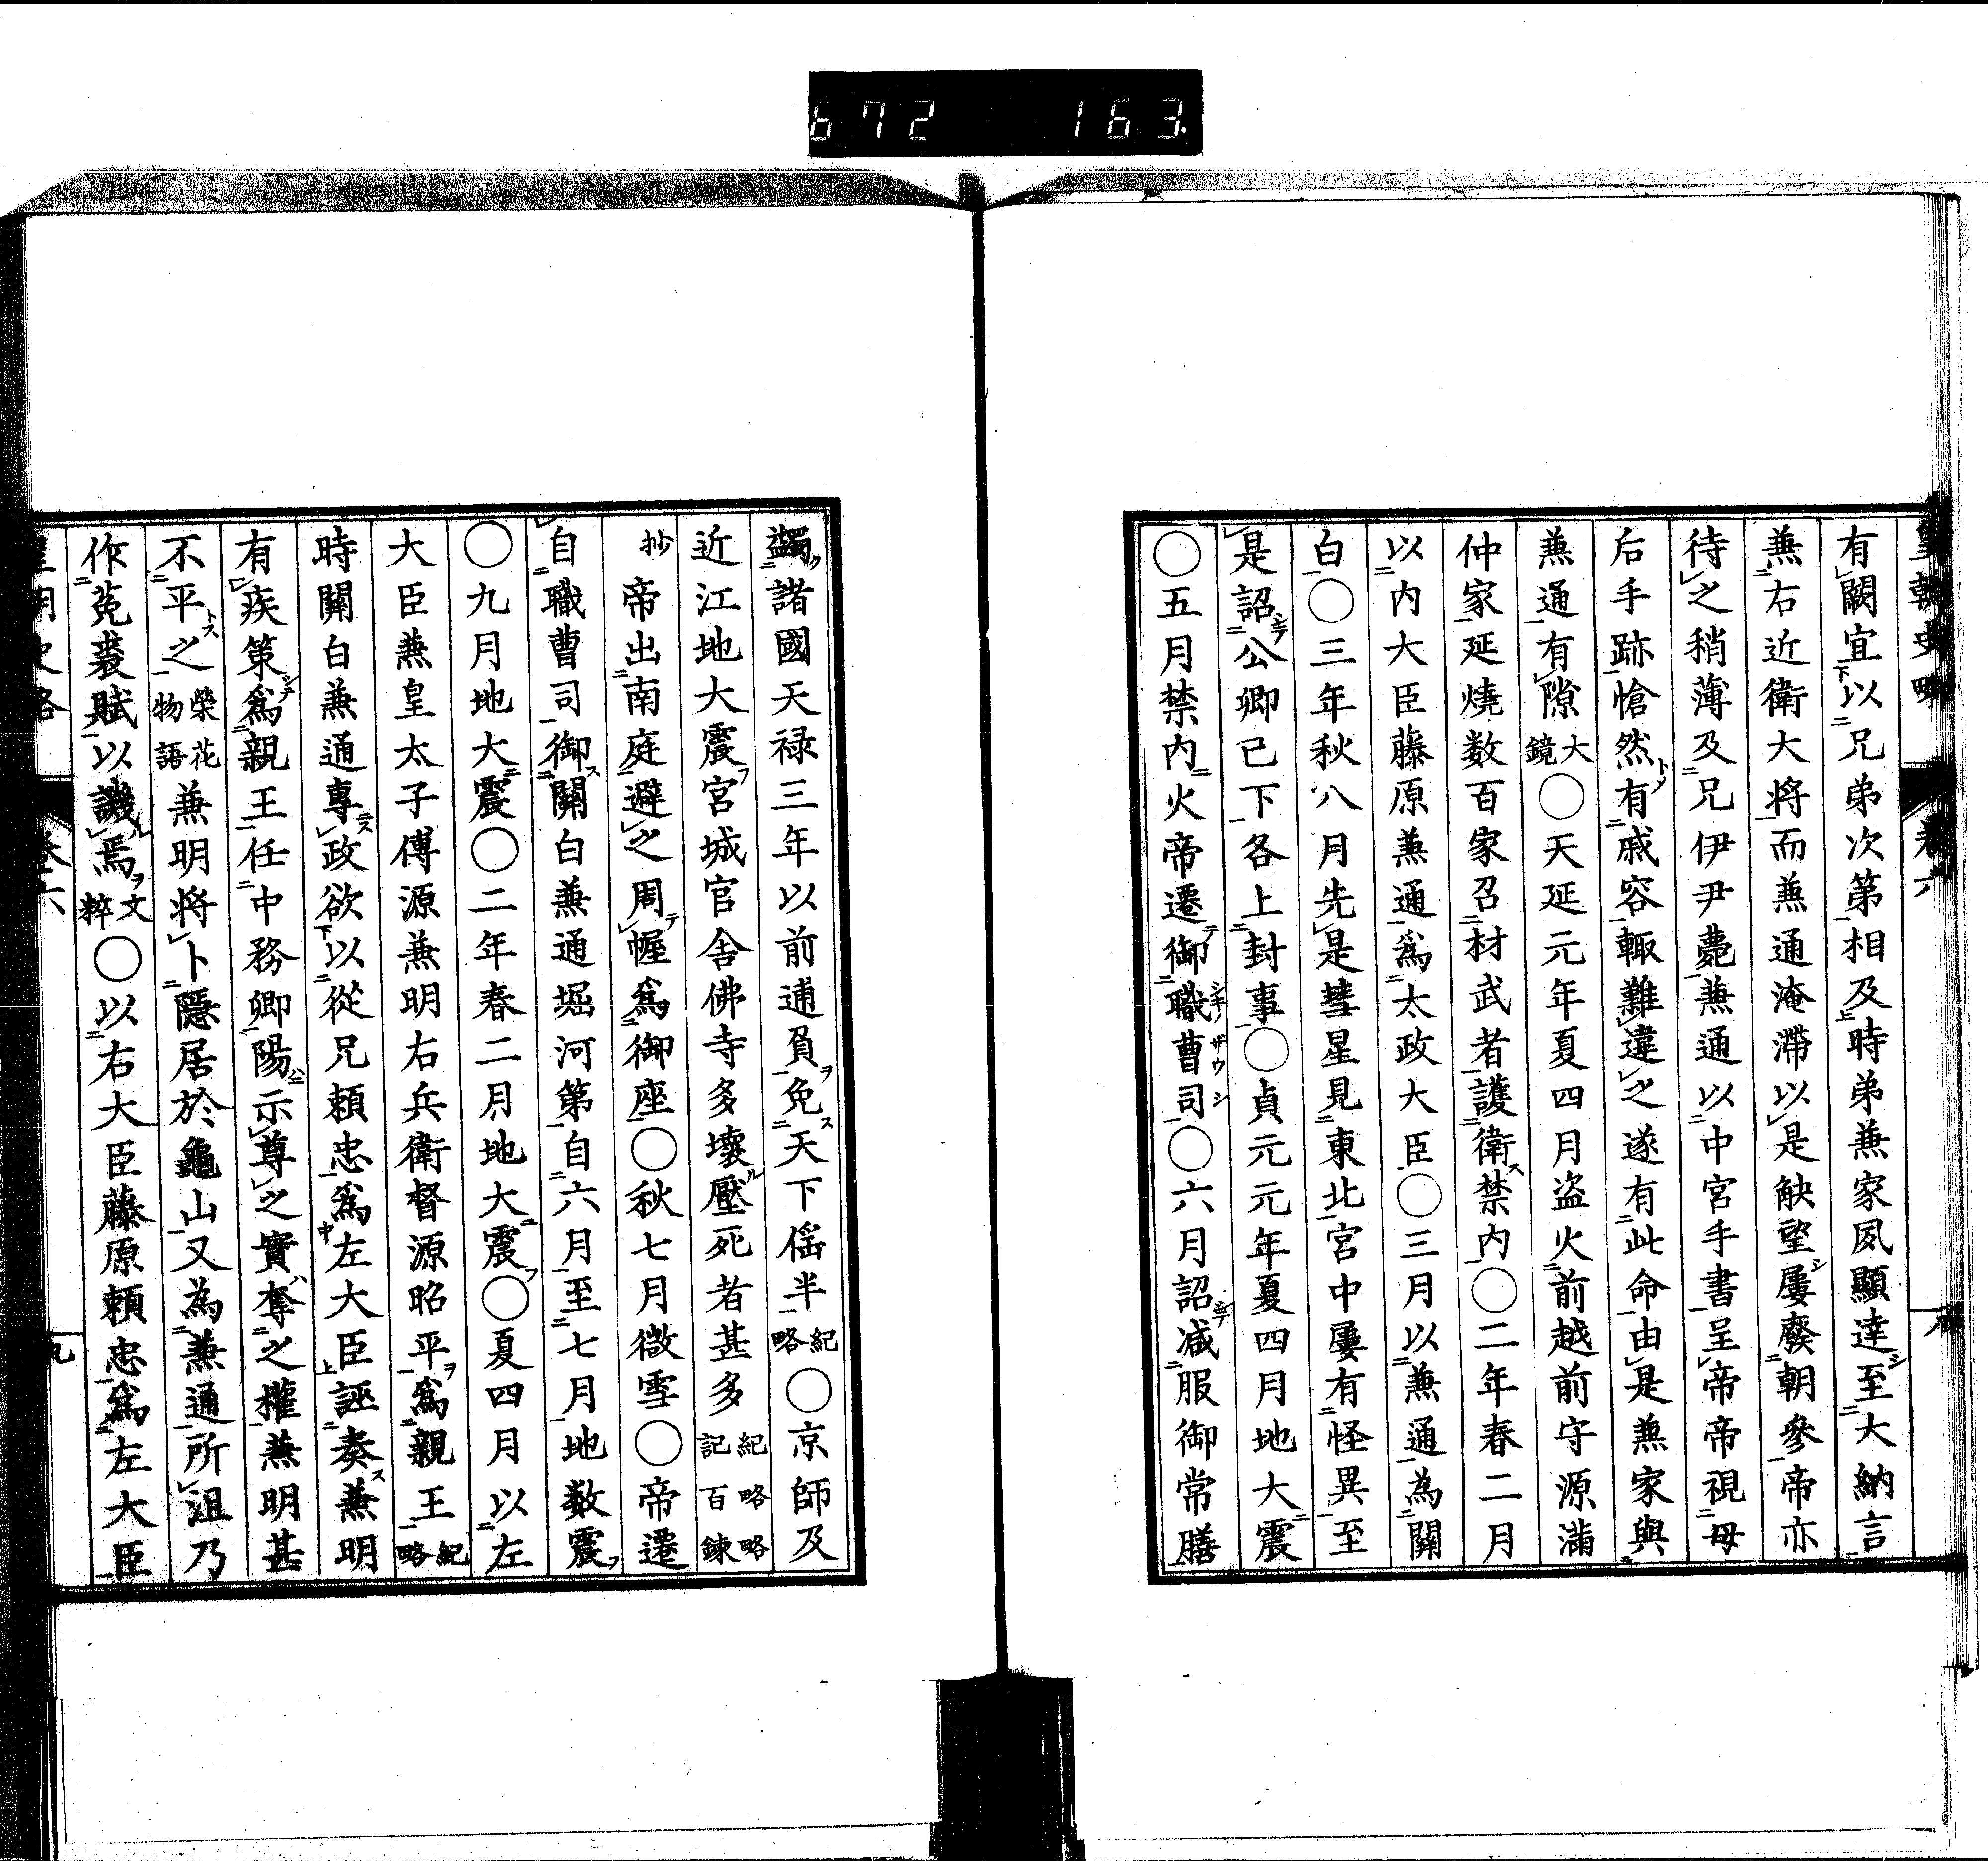 672 163
皇朝史略 卷六
有闕宜以兄弟次第相及時弟兼家夙顯達至大納言
兼右近衛大將而兼通淹滯以是觖望屢廢朝參帝亦
待之稍薄及兄伊尹薨兼通以中宮手書呈帝帝視母
后手跡愴然有戚容輙難違之遂有此命由是兼家與
兼通有隙大鏡〇天延元年夏四月盜火前越前守源滿
仲家延燒数百家召材武者護衛禁內〇二年春二月
以內大臣藤原兼通爲太政大臣〇三月以兼通為關
白〇三年秋八月先是彗星見東北宮中屢有怪異至
是詔公卿已下各上封事〇貞元元年夏四月地大震
〇五月禁内火帝遷御職曹司〇六月詔減服御常膳
蠲諸國天禄三年以前逋負免天下徭半紀略〇京師及
近江地大震宮城官舍佛寺多壞壓死者甚多紀略百鍊
抄帝出南庭避之周幄爲御座〇秋七月微雪〇帝遷
自職曹司御關白兼通堀河第自六月至七月地数震
〇九月地大震〇二年春二月地大震〇夏四月以左
大臣兼皇太子傅源兼明右兵衛督源昭平爲親王紀略
時關白兼通專政欲以從兄頼忠爲左大臣誣奏兼明
有疾策爲親王任中務卿陽示尊之實奪之權兼明甚
不平之榮花物語兼明將卜隱居於龜山又為兼通所沮乃
作菟裘賦以譏焉文粹〇以右大臣藤原頼忠爲左大臣